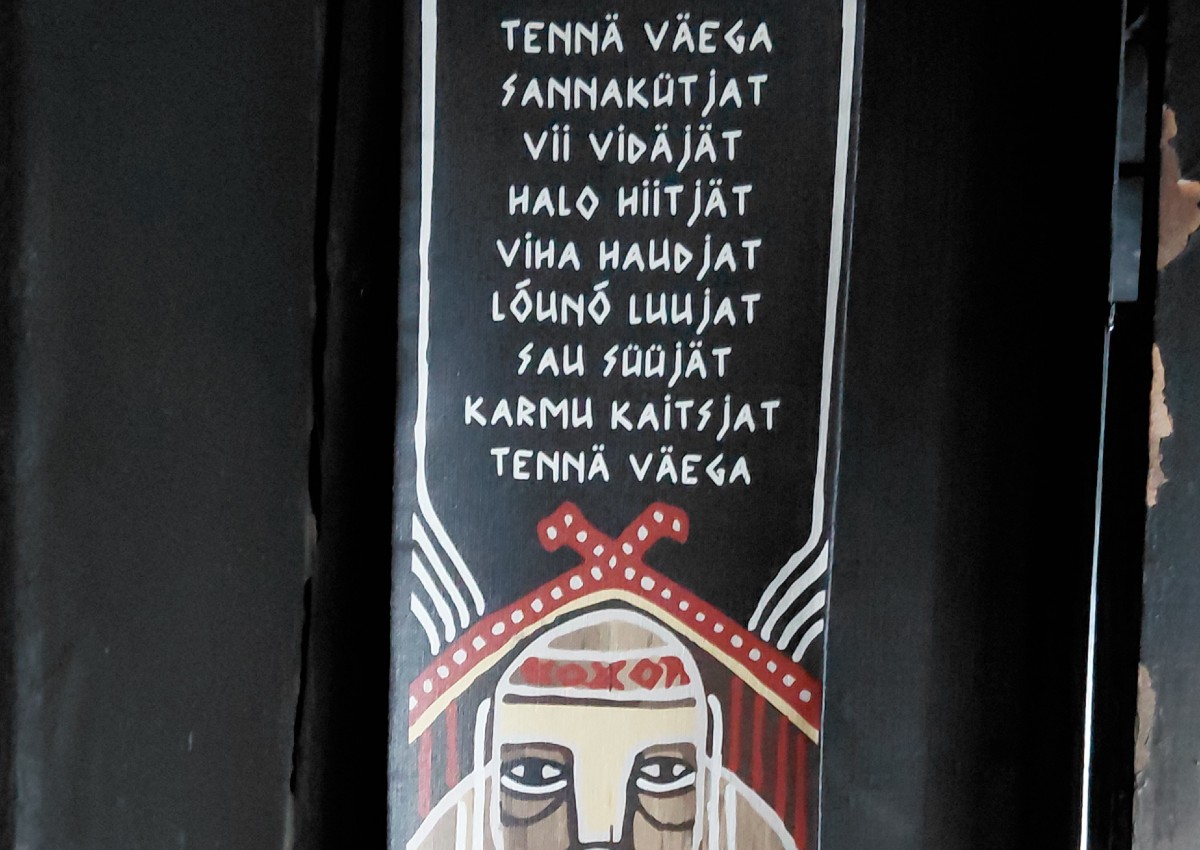 TENNÄ VÄEGA
SANNAKÜTJAT
VII VIDÄJÄT
HALO HIITJÄT
VIHA HAUDJAT
LÓUNÓ LUUJAT
SAU SÜÜJÄT
KARMU KAITSJAT
TENNÄ VÄEGA